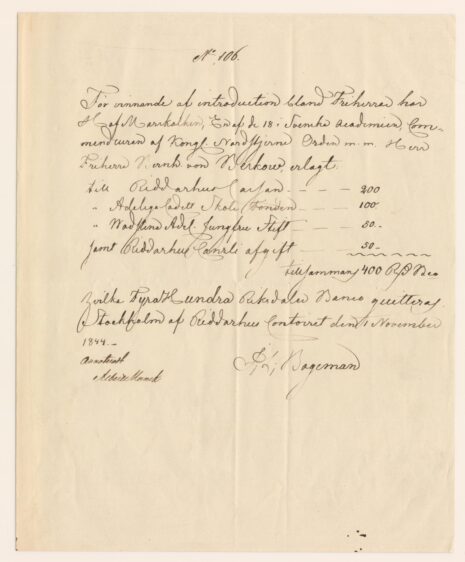 No 106.
För vinnande af introduction bland Friherrar har
Hof Marskalken, En af de 18 i Svenska Academien, Com-
mendeuren af Kongl. Nordstjerne Orden m. m. Herr
Friherre Bernh von Beskow, erlagt
till Riddarhus Cassan - - - - 200
" Adeliga Cadett Skole Fonden - - - 100
" Wadstena Adel. Jungfru Stift - - 50.-
Samt Riddarhus Cansli afgift - - - 50-
tillsammans 400 Rd Bco
Hvilka Fyra Hundra Riksdaler Banco quitteras.
Stockholm af Riddarhus Contoiret den 1 November
1844.-
Bageman